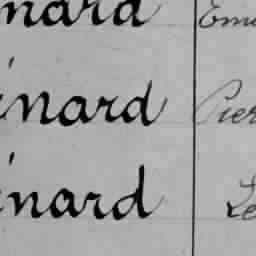 énard Em
énard Pier
énard Le